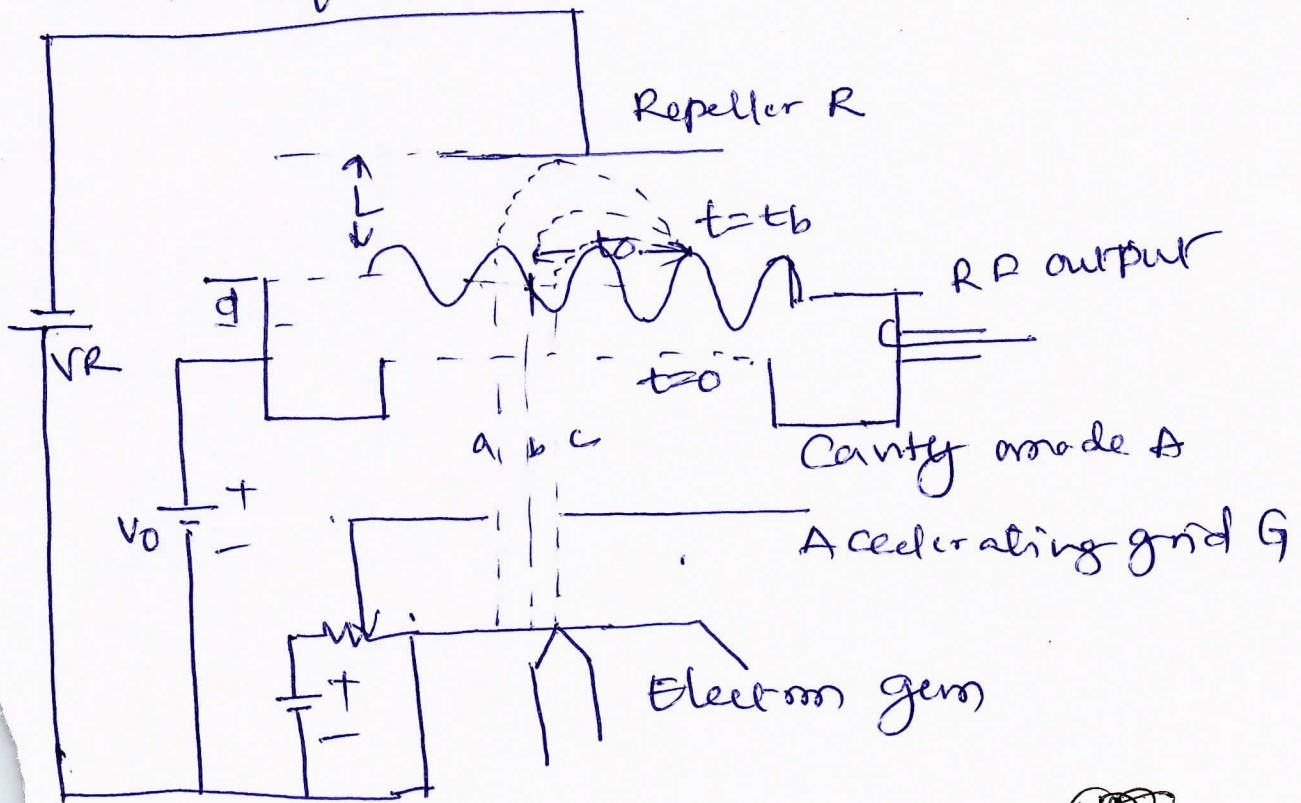 Repeller R
L
t=tb
to
RF output
d
VR
t=0
a b c
Cavity anode A
V0
+
-
Accelerating grid G
+
-
Electron gun